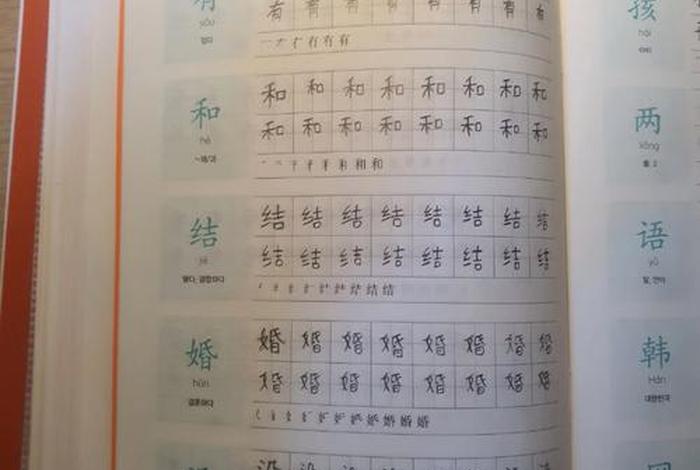 有 有 有 有 有 有 有 有
有
yǒu
있다
一 ナ 才 冇 有 有 有
和 和 和 和 和 和 和 和
和
和 和 和 和 和 和 和 和
hé
~와/과
和 和
结 结 结 结 结 结 结 结
结
结 结 结 结 结 结 结 结
jié
맺다, 결합하다
结 结
婚 婚 婚 婚 婚 婚 婚 婚
婚
婚 婚 婚 婚 婚 婚 婚 婚
hūn
결혼하다
婚 婚 婚
没 没 没
孩
hái
아이
两
liǎng
둘, 2
语
yǔ
말, 언어
韩
Hán
대한민국